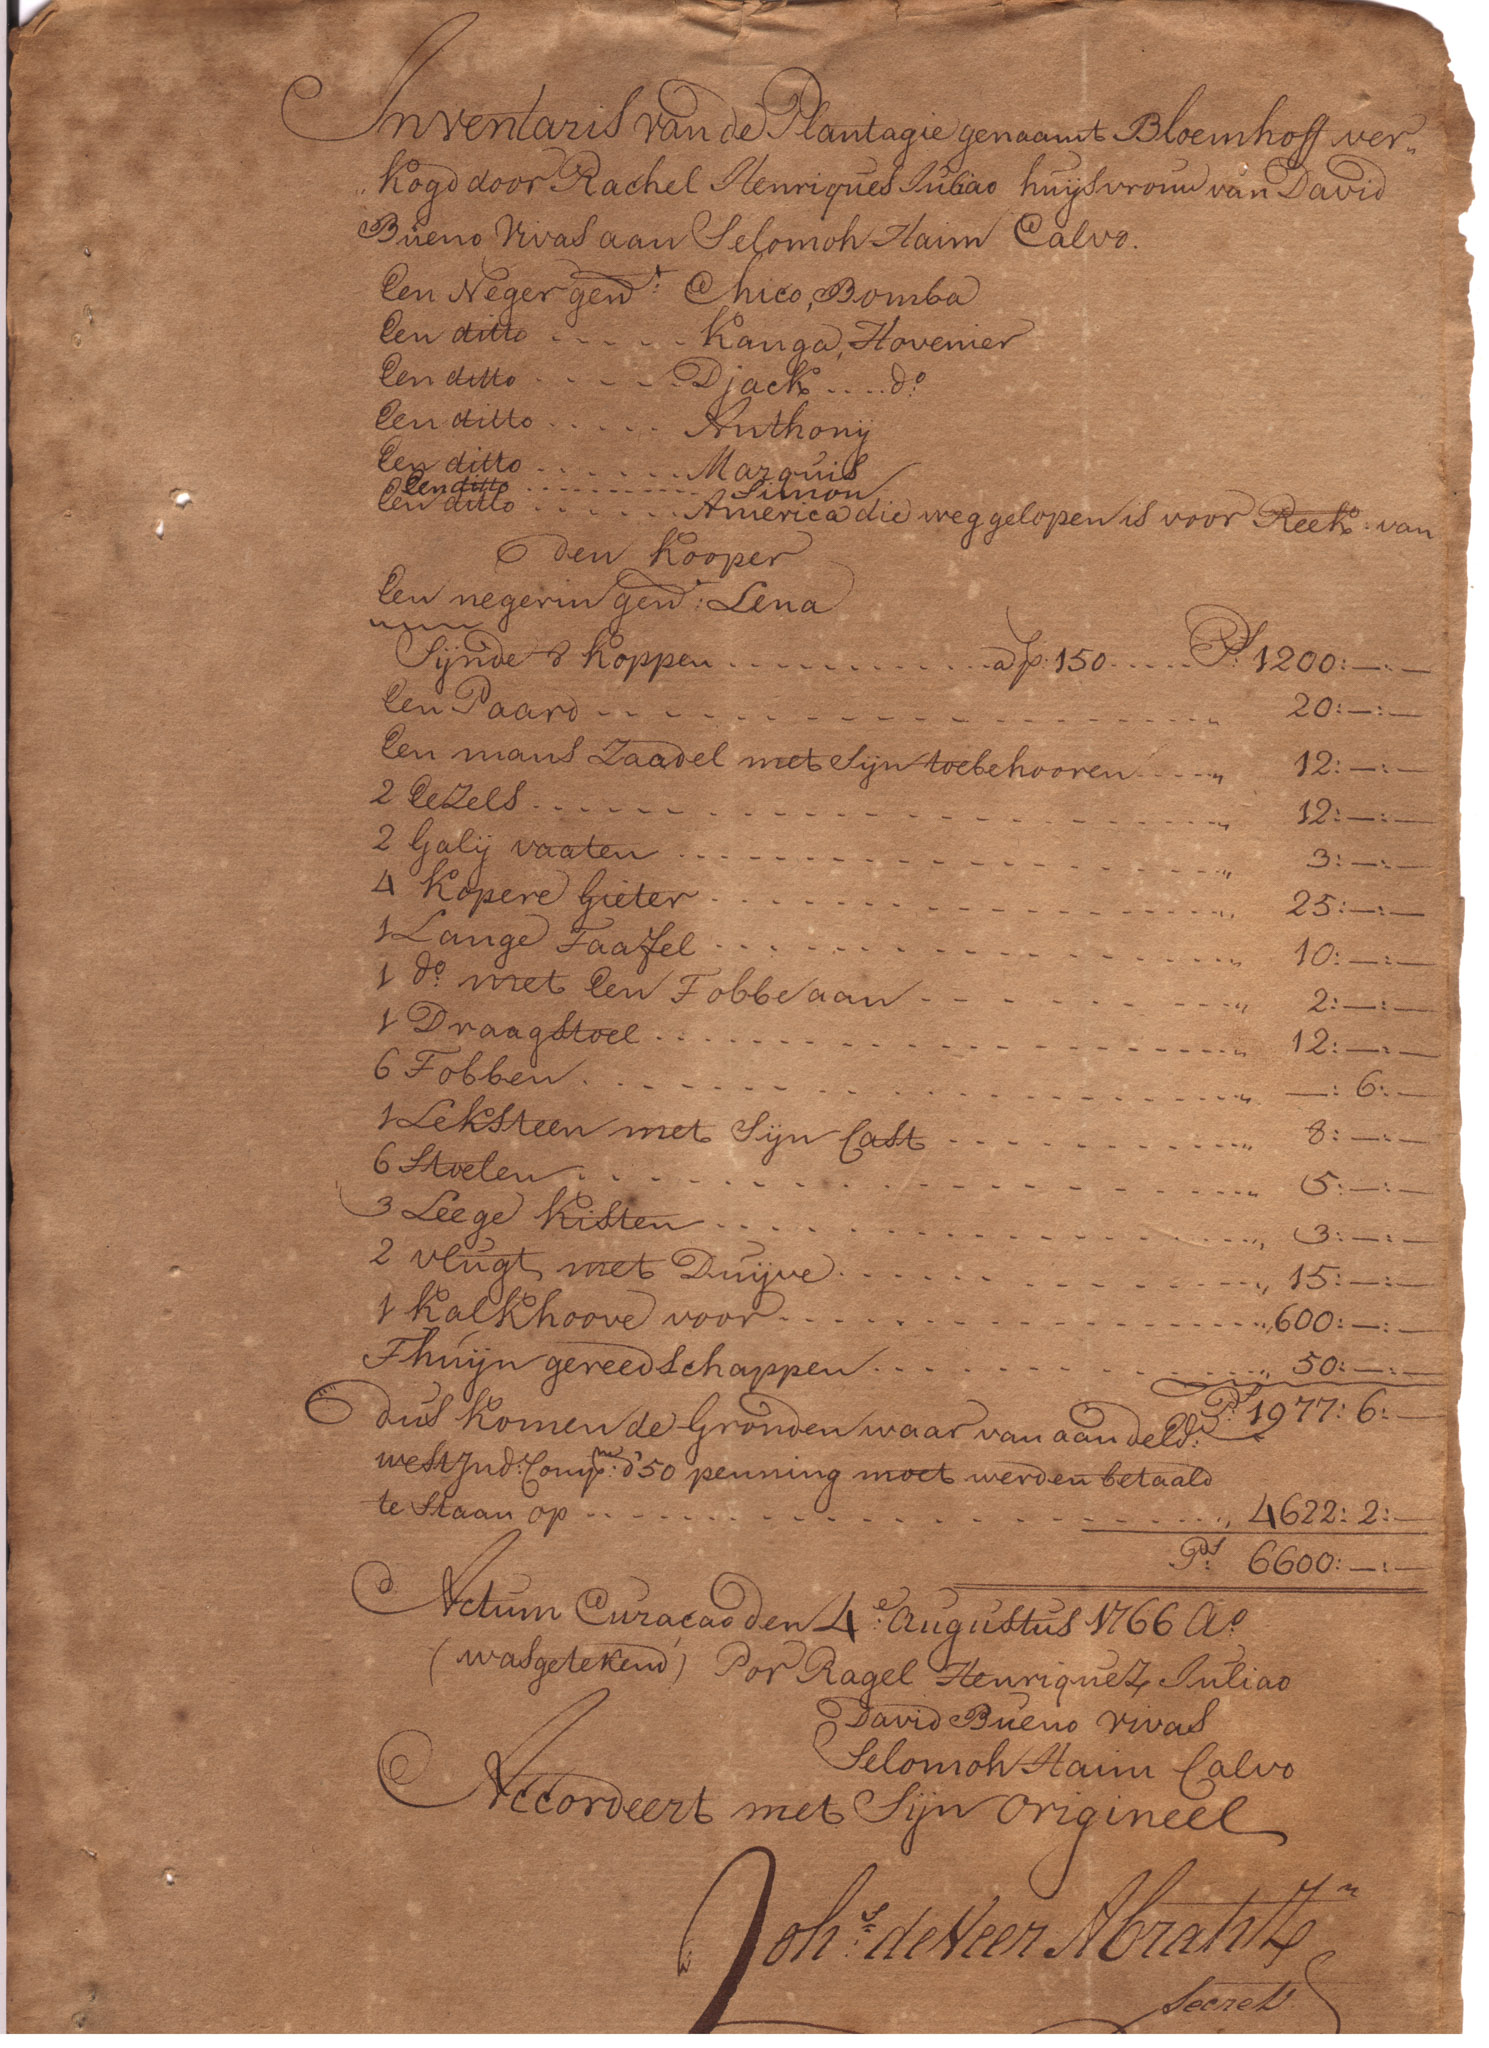 Inventaris van de Plantagie genaamt Bloemhoff ver„
„kogd door Rachel Henriques Juliao huijsvrouw van David
Bueno Vivas aan Selomoh Haim Calvo.
Een Neger gen:t Chico, Bomba
Een ditto . . . . . Kanga, Hovenier
Een ditto . . . . . Djack . . . . d:o
Een ditto . . . . . Anthonij
Een ditto . . . . . Marquis
Een ditto . . . . . Simon
Een ditto . . . . . America die weggelopen is voor Reek: van
den Kooper
Een negerin gen:t Lena
Sijnde 8 Koppen . . . . . a p: 150 . . . . . P:s 1200:—:—
Een Paard . . . . . „ 20:—:—
Een mans Zaadel met Sijn toebehooren . . . . . „ 12:—:—
2 Eezels . . . . . „ 12:—:—
2 Galij vaaten . . . . . „ 3:—:—
4 Kopere Gieter . . . . . „ 25:—:—
1 Lange Taafel . . . . . „ 10:—:—
1 d:o met Een Tobbe aan . . . . . „ 2:—:—
1 Draagstoel . . . . . „ 12:—:—
6 Tobben . . . . . „ —:6:—
1 Leksteen met Sijn Cast . . . . . „ 8:—:—
6 Stoelen . . . . . „ 5:—:—
3 Leege Kisten . . . . . „ 3:—:—
2 vlugt met Duijve . . . . . „ 15:—:—
1 Kalkhoove voor . . . . . „ 600:—:—
Thuijn gereedschappen . . . . . „ 50:—:—
P:s 1977:6:—
dus Komen de Gronden waar van aan de Ed:
westInd: Comp:ie d' 50 penning moet werden betaald
te Staan op . . . . . „ 4622:2:—
P:s 6600:—:—
Actum Curacao den 4:e Augustus 1766 A:o
(was getekend) Por Ragel Henriquez Juliao
David Bueno Vivas
Selomoh Haim Calvo
Accordeert met Sijn Origineel
Joh:s de Veer Abrah:z
Secret:s